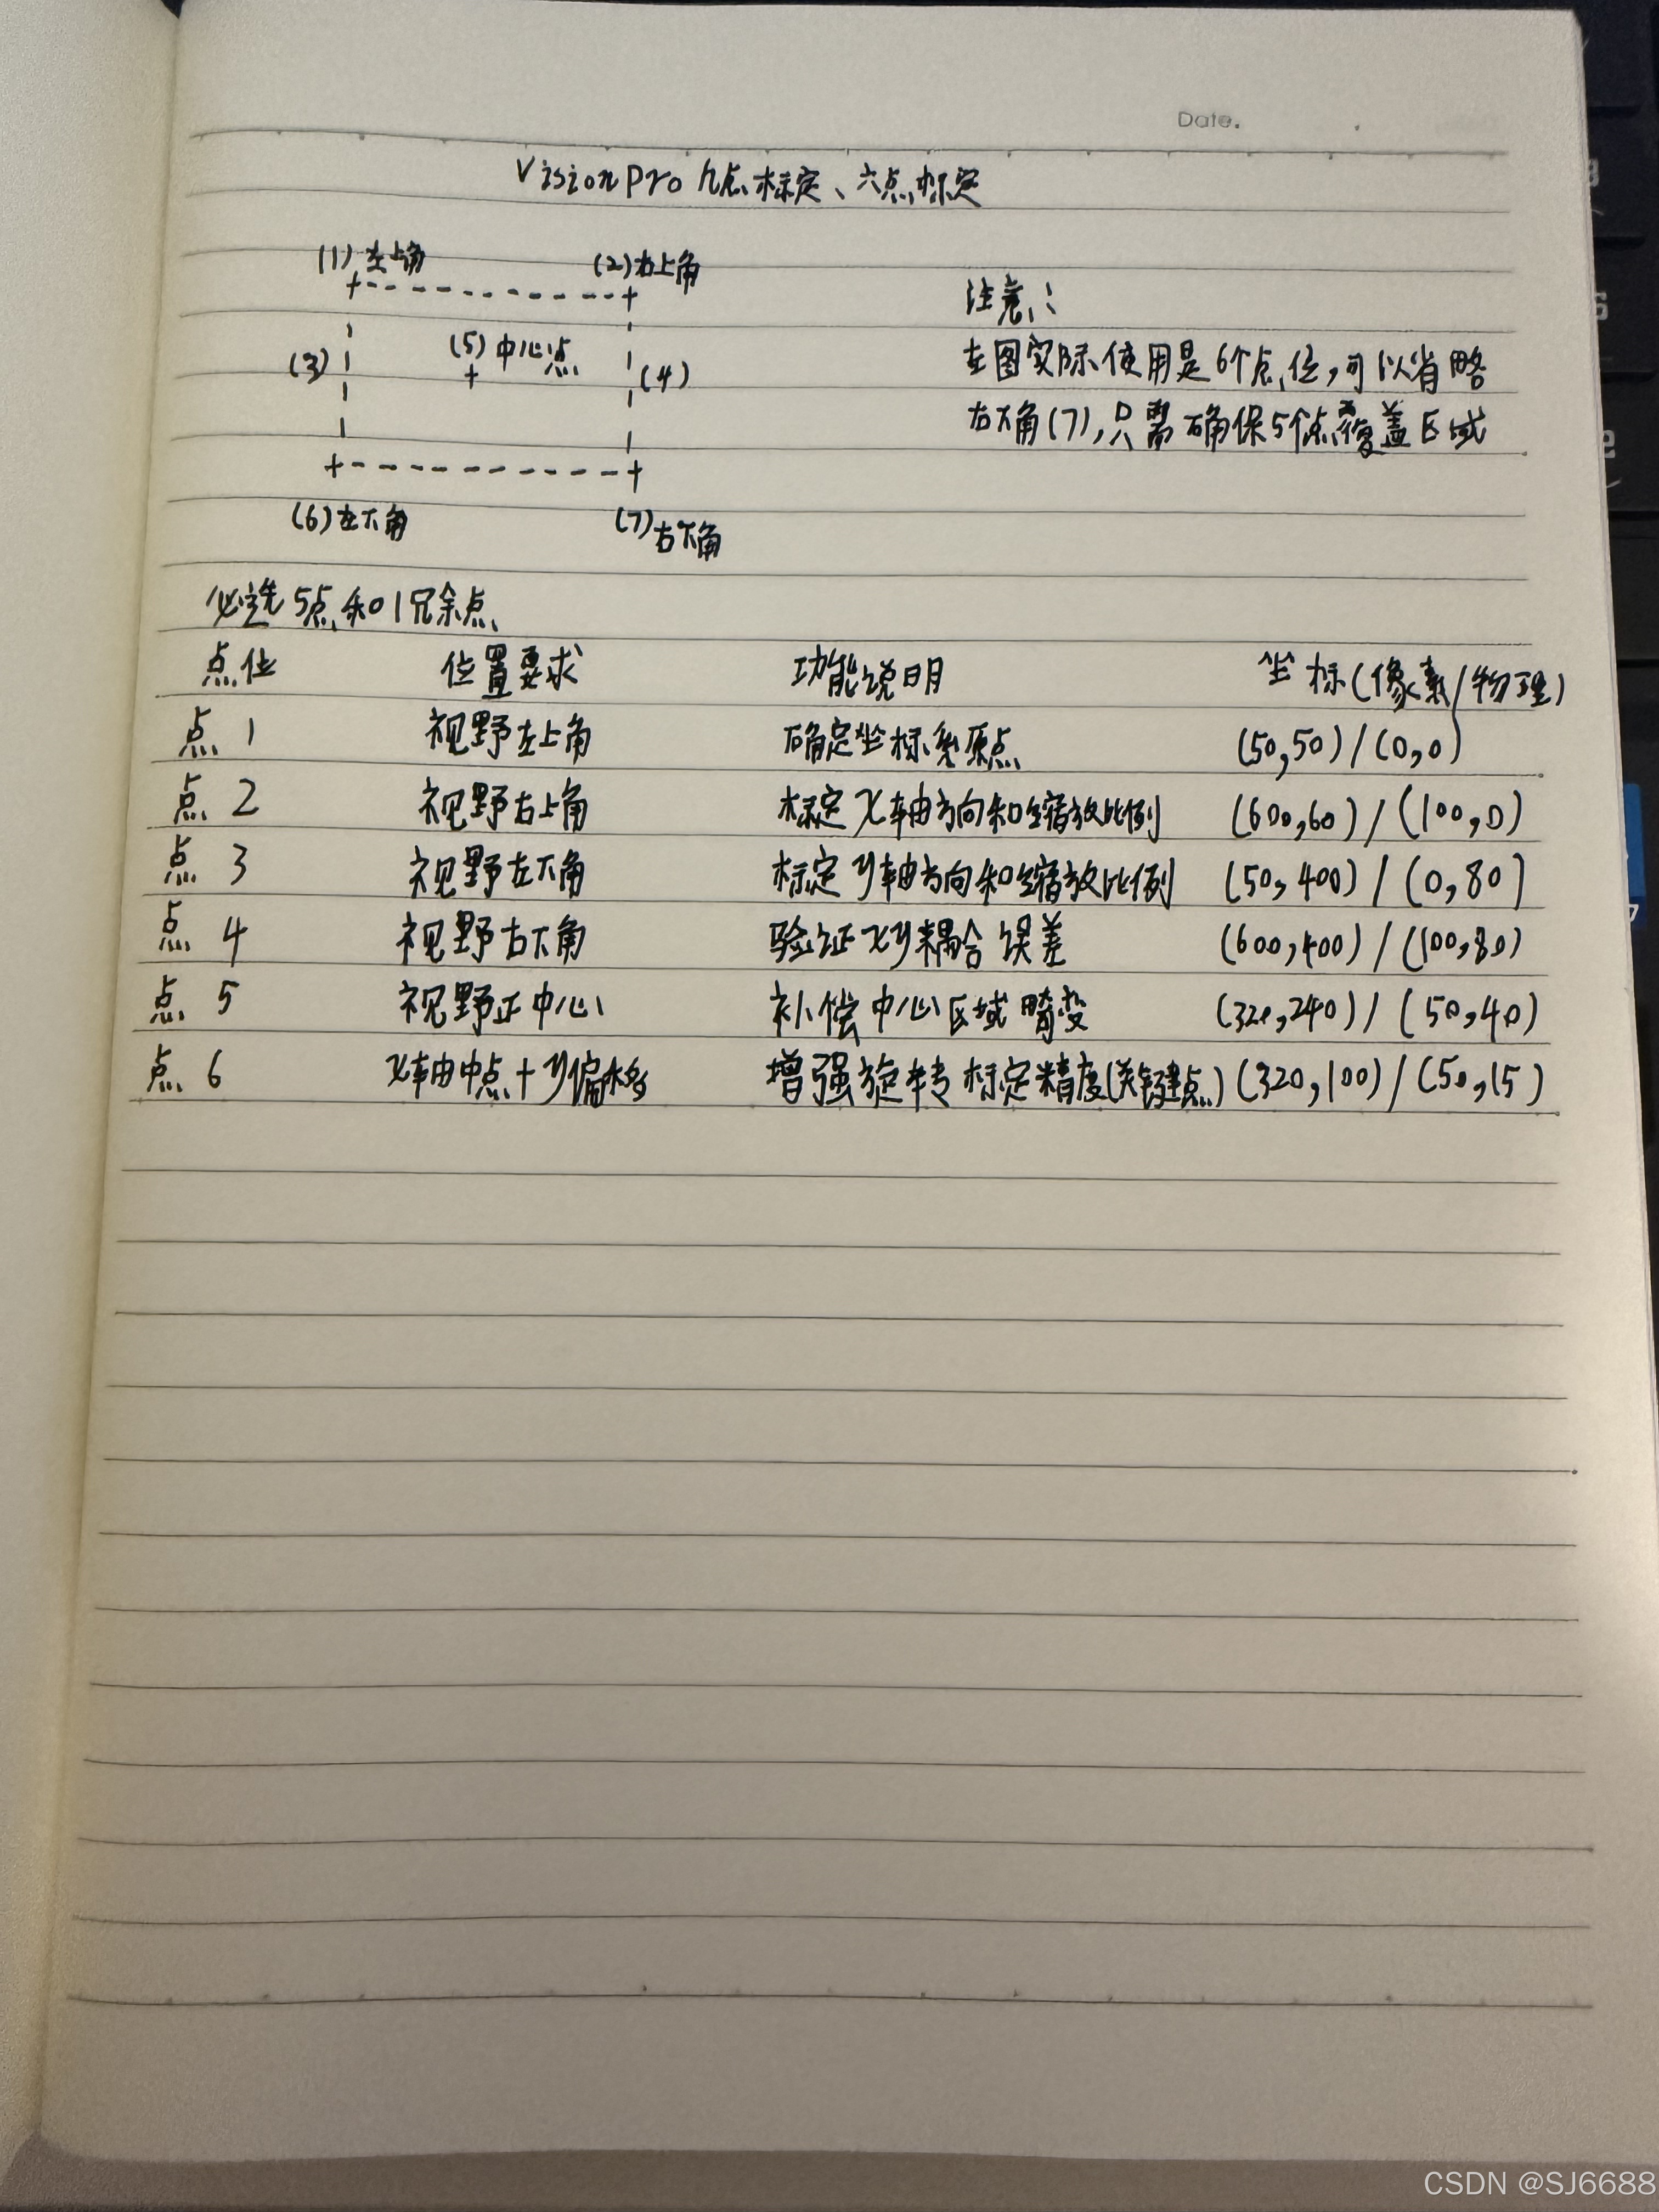 Date.
Vision Pro 九点标定、六点标定
(1) 左上角 (2)右上角
注意:
(5) 中心点
(3) (4)
左图实际使用是6个点位,可以省略
右下角(7),只需确保5个点覆盖区域
(6)左下角 (7)右下角
必选5点和1冗余点
点位 位置要求 功能说明 坐标(像素/物理)
点 1 视野左上角 确定坐标系原点 (50,50)/(0,0)
点 2 视野右上角 标定X轴方向和缩放比例 (600,60)/(100,0)
点 3 视野左下角 标定Y轴方向和缩放比例 (50,400)/(0,80)
点 4 视野右下角 验证XY耦合误差 (600,400)/(100,80)
点 5 视野正中心 补偿中心区域畸变 (320,240)/(50,40)
点 6 X轴中点+Y偏移 增强旋转标定精度(关键点) (320,100)/(50,15)
CSDN @SJ6688